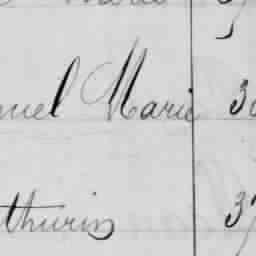 nuel Marie 30
thurin 37